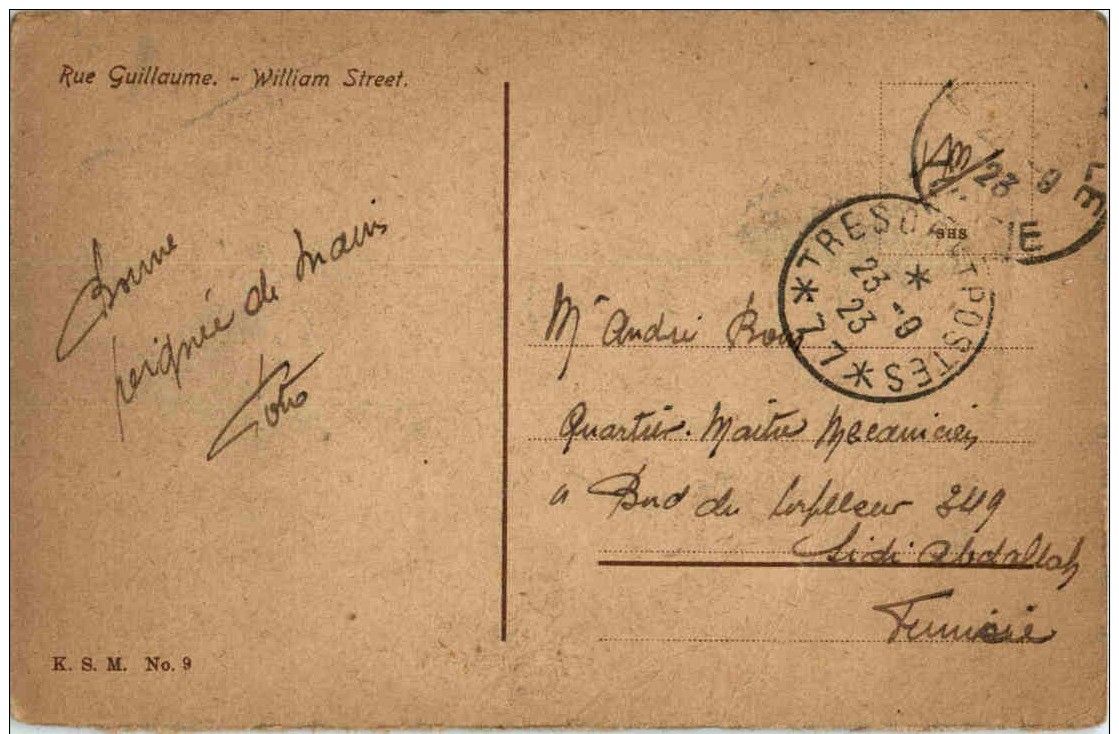 Rue Guillaume. - William Street.
Bonne
poignée de mains
Toto
Mr André
Quartier-Maitre Mecanicien
a Bord du torpilleur 349
Sidi Abdallah
Tunisie
TRESOR ET POSTES
* 77 *
23 - 9
23
23 9
SHS
K. S. M. No. 9